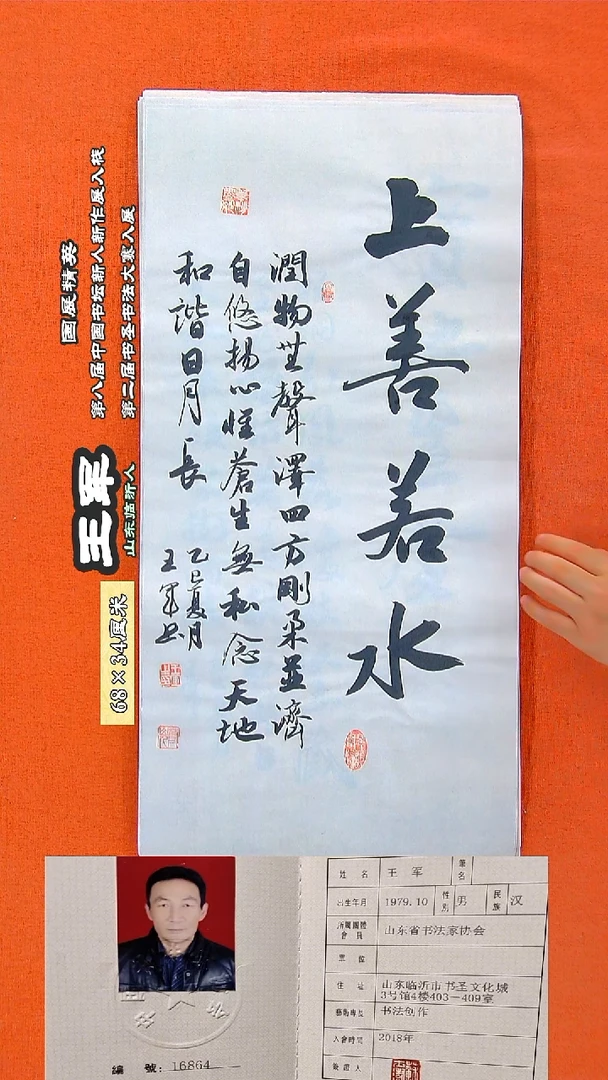 上善若水
潤物無聲澤四方剛柔並濟
自悠揚心懷蒼生無私念天地
和諧日月長
乙巳夏月
王军书
国展精英
第八届中国书坛新人新作展入展
第二届书圣书法大赛入展
王军
山东临沂人
68×34厘米
姓 名 王 军 筆名
出生年月 1979.10 性别 男 民族 汉
所屬團體會員 山东省书法家协会
住 址 山东临沂市书圣文化城3号馆4楼403-409室
书法创作
入會時間 2018年
簽證人
編 號: 16864